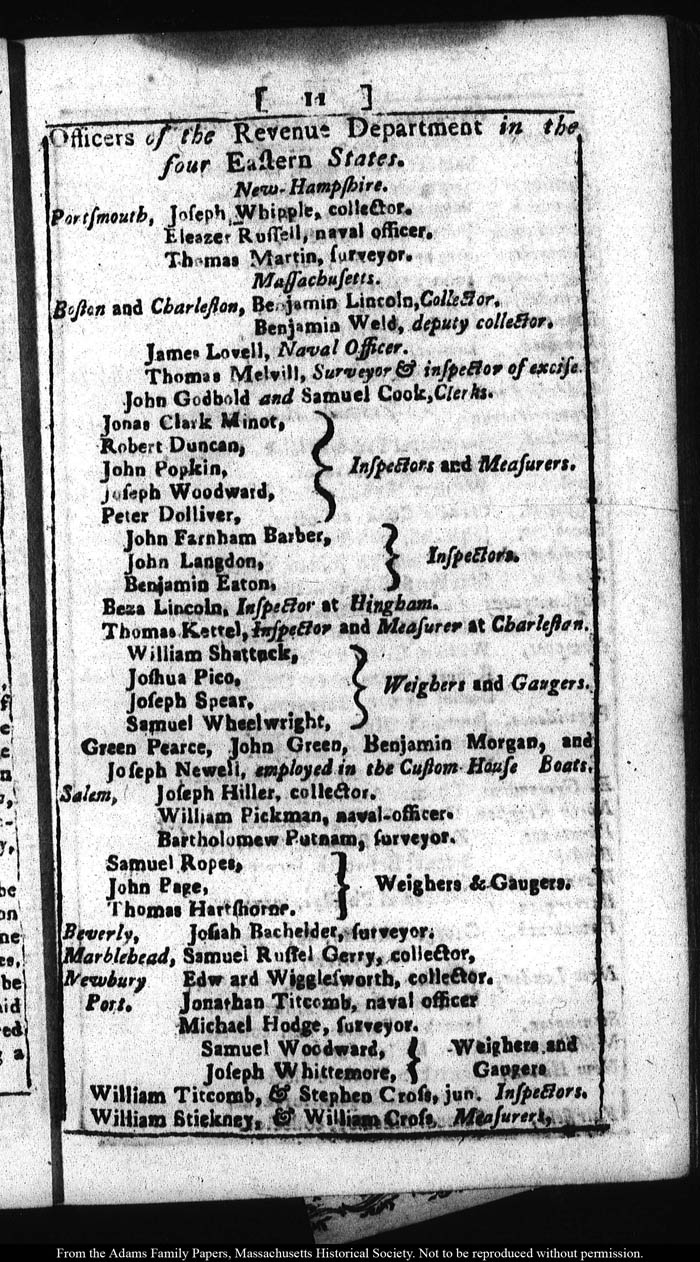 [ 11 ]
Officers of the Revenue Department in the
four Eaſtern States.
New-Hampſhire.
Portſmouth, Joſeph Whipple, collector.
Eleazer Ruſſell, naval officer.
Thomas Martin, ſurveyor.
Maſſachuſetts.
Boſton and Charleſton, Benjamin Lincoln, Collector.
Benjamin Weld, deputy collector.
James Lovell, Naval Officer.
Thomas Melvill, Surveyor & inſpector of exciſe.
John Godbold and Samuel Cook, Clerks.
Jonas Clark Minot,
Robert Duncan,
John Popkin, } Inſpectors and Meaſurers.
Joſeph Woodward,
Peter Dolliver,
John Farnham Barber,
John Langdon, } Inſpectors.
Benjamin Eaton,
Beza Lincoln, Inſpector at Hingham.
Thomas Kettel, Inſpector and Meaſurer at Charleſtan.
William Shattuck,
Joſhua Pico, } Weighers and Gaugers.
Joſeph Spear,
Samuel Wheelwright,
Green Pearce, John Green, Benjamin Morgan, and
Joſeph Newell, employed in the Cuſtom-Houſe Boats.
Salem, Joſeph Hiller, collector.
William Pickman, naval-officer.
Bartholomew Putnam, ſurveyor.
Samuel Ropes,
John Page, } Weighers & Gaugers.
Thomas Hartſhorne.
Beverly, Joſiah Bachelder, ſurveyor.
Marblehead, Samuel Ruſſel Gerry, collector,
Newbury Edw ard Wiggleſworth, collector.
Port. Jonathan Titcomb, naval officer
Michael Hodge, ſurveyor.
Samuel Woodward, { Weighers and
Joſeph Whittemore, Gaugers
William Titcomb, & Stephen Croſs, jun. Inſpectors.
William Stickney, & William Croſs, Meaſurers,
From the Adams Family Papers, Massachusetts Historical Society. Not to be reproduced without permission.